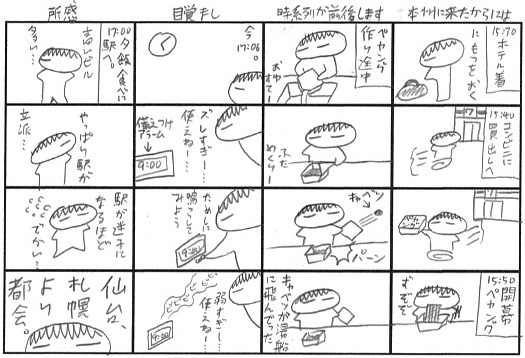 本州に来たからには
15:70
ホテル着
にもつをおく
15:40
コンビニに
買い出しへ
15:50
開幕
ペヤング
ずぞぞ
時系列が前後します
ペヤング
作り途中
おゆすてー
ふた
めくりー
ベリッ
キャベ
パーン
キャベツが湯船
に飛んでった
目覚まし
今
17:06。
ズレすぎ!…
使えねー…
備えつけ
アラーム
9:00
ためしに
鳴らして
みよう
19:00
弱すぎ!…
使えねー!
19:00
所感
17:00
夕飯食べに
駅へ。
高いビル
多い…
やっぱり駅が
立派…
駅が迷子に
なるほど
でかい…
仙台、
札幌
より
都会。